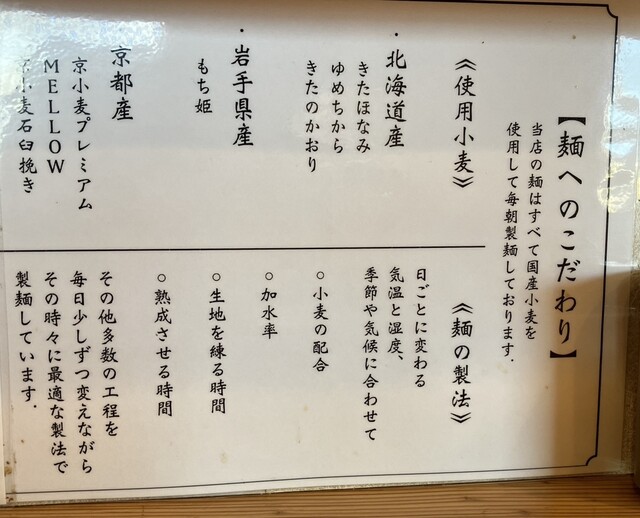 【麺へのこだわり】
当店の麺はすべて国産小麦を
使用して毎朝製麺しております.
《使用小麦》
・北海道産
きたほなみ
ゆめちから
きたのかおり
・岩手県産
もち姫
京都産
京小麦プレミアム
MELLOW
小麦石臼挽き
《麺の製法》
日ごとに変わる
気温と湿度、
季節や気候に合わせて
○小麦の配合
○加水率
○生地を練る時間
○熟成させる時間
その他多数の工程を
毎日少しずつ変えながら
その時々に最適な製法で
製麺しています.